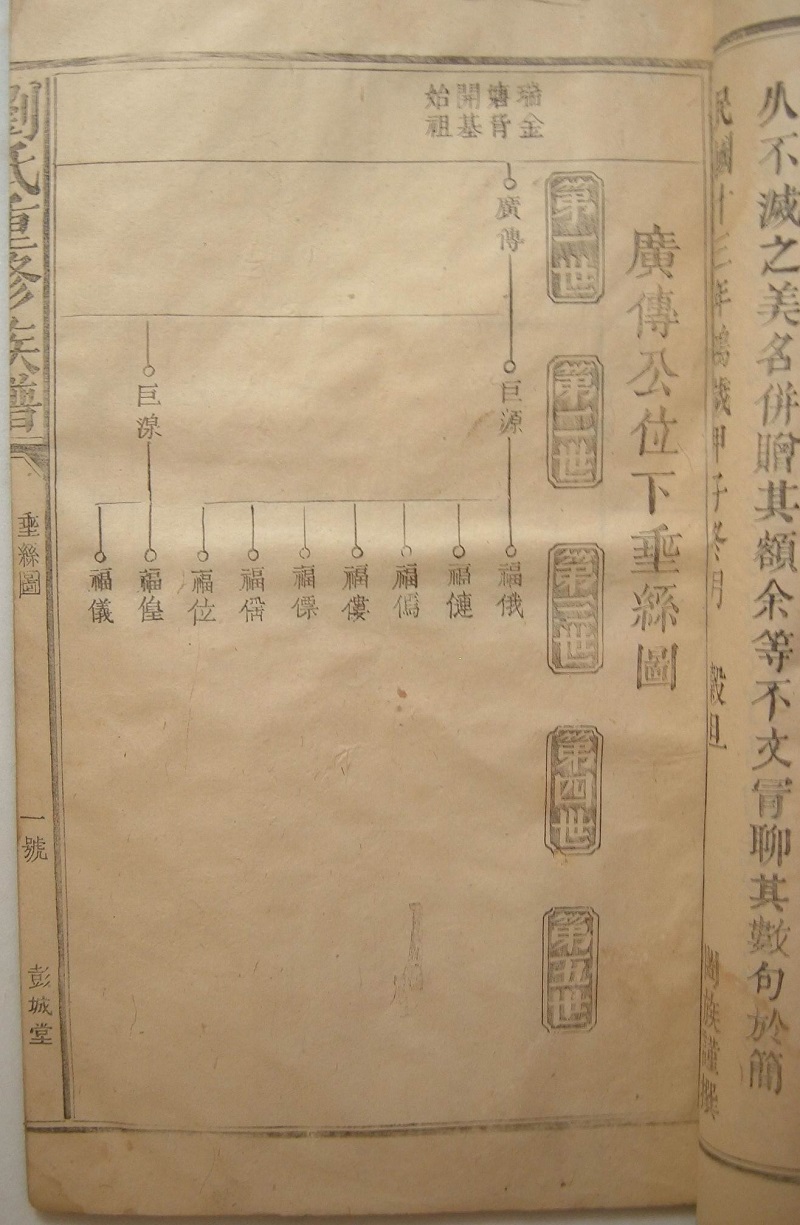 不滅之美名併贈其額余等不文冐聊其數句於簡
民國十三年歲甲子冬月 穀旦
族謹撰
廣傳公位下垂絲圖
第一世
第二世
第三世
第四世
第五世
金
開基
始祖
廣傳
巨源
巨湶
福俄
福僆
福僞
福僂
福僳
福位
福偟
福儀
劉氏重修族譜
垂絲圖
一號
彭城堂